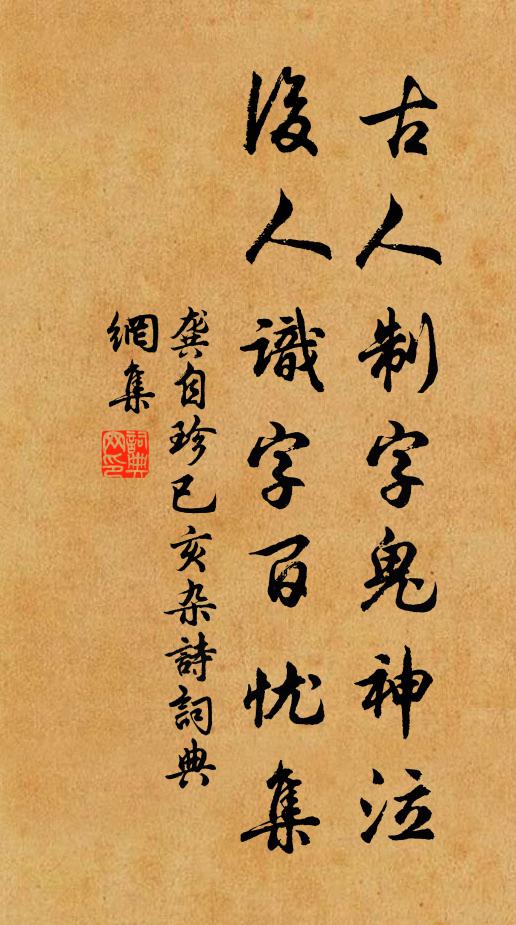 古人制字鬼神泣
後人識字百忧集
龚自珍已亥杂詩詞典
網集
詞典
网印